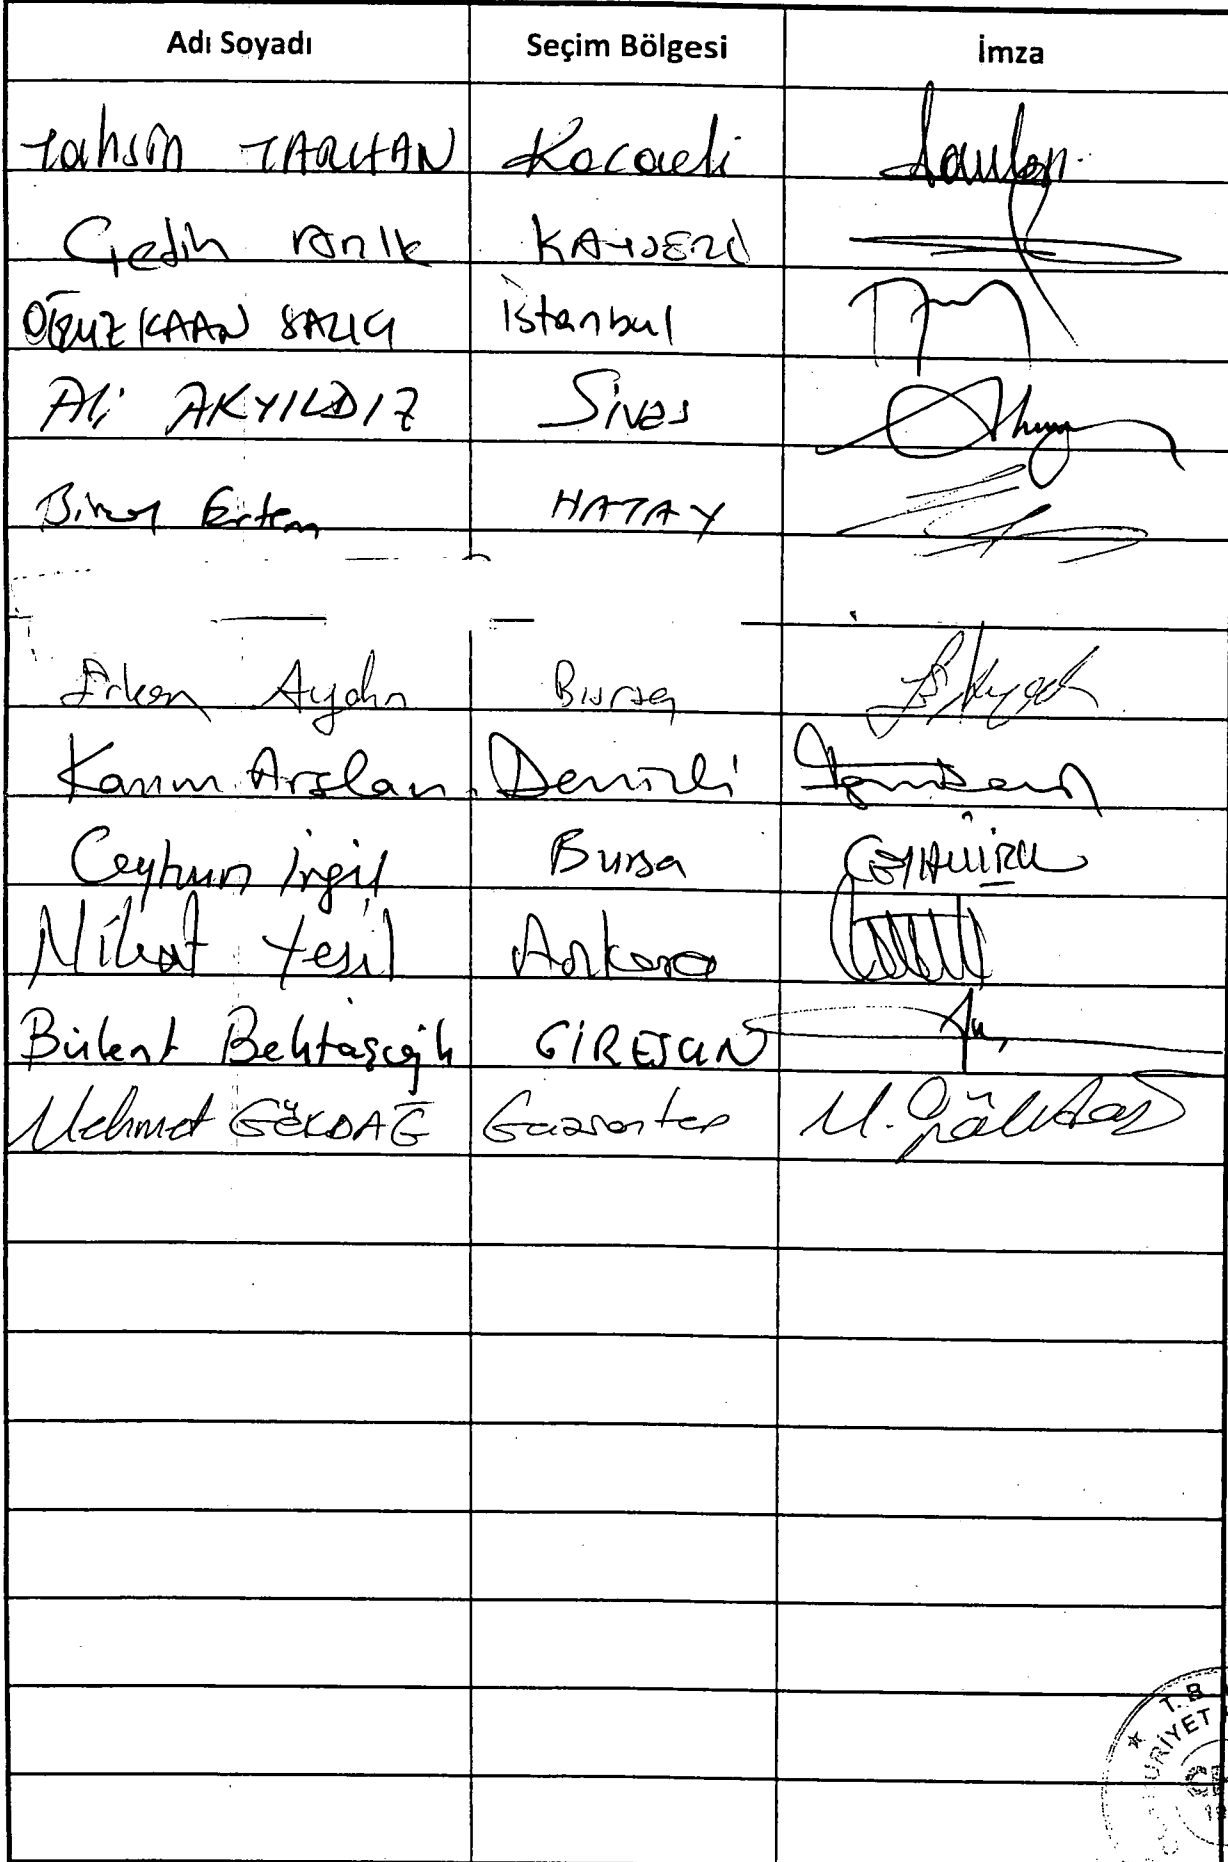 Adı Soyadı Seçim Bölgesi İmza
Tahsin TARHAN Kocaeli
Çetin Arık KAYSERİ
OĞUZ KAAN SALICI İstanbul
Ali AKYILDIZ Sivas
Birol Ertem HATAY
Erkan Aydın Bursa
Kazım Arslan Denizli
Ceyhun İrgil Bursa
Nihat Yeşil Ankara
Bülent Bektaşoğlu GİRESUN
Mehmet GÖKDAĞ Gaziantep
T.B